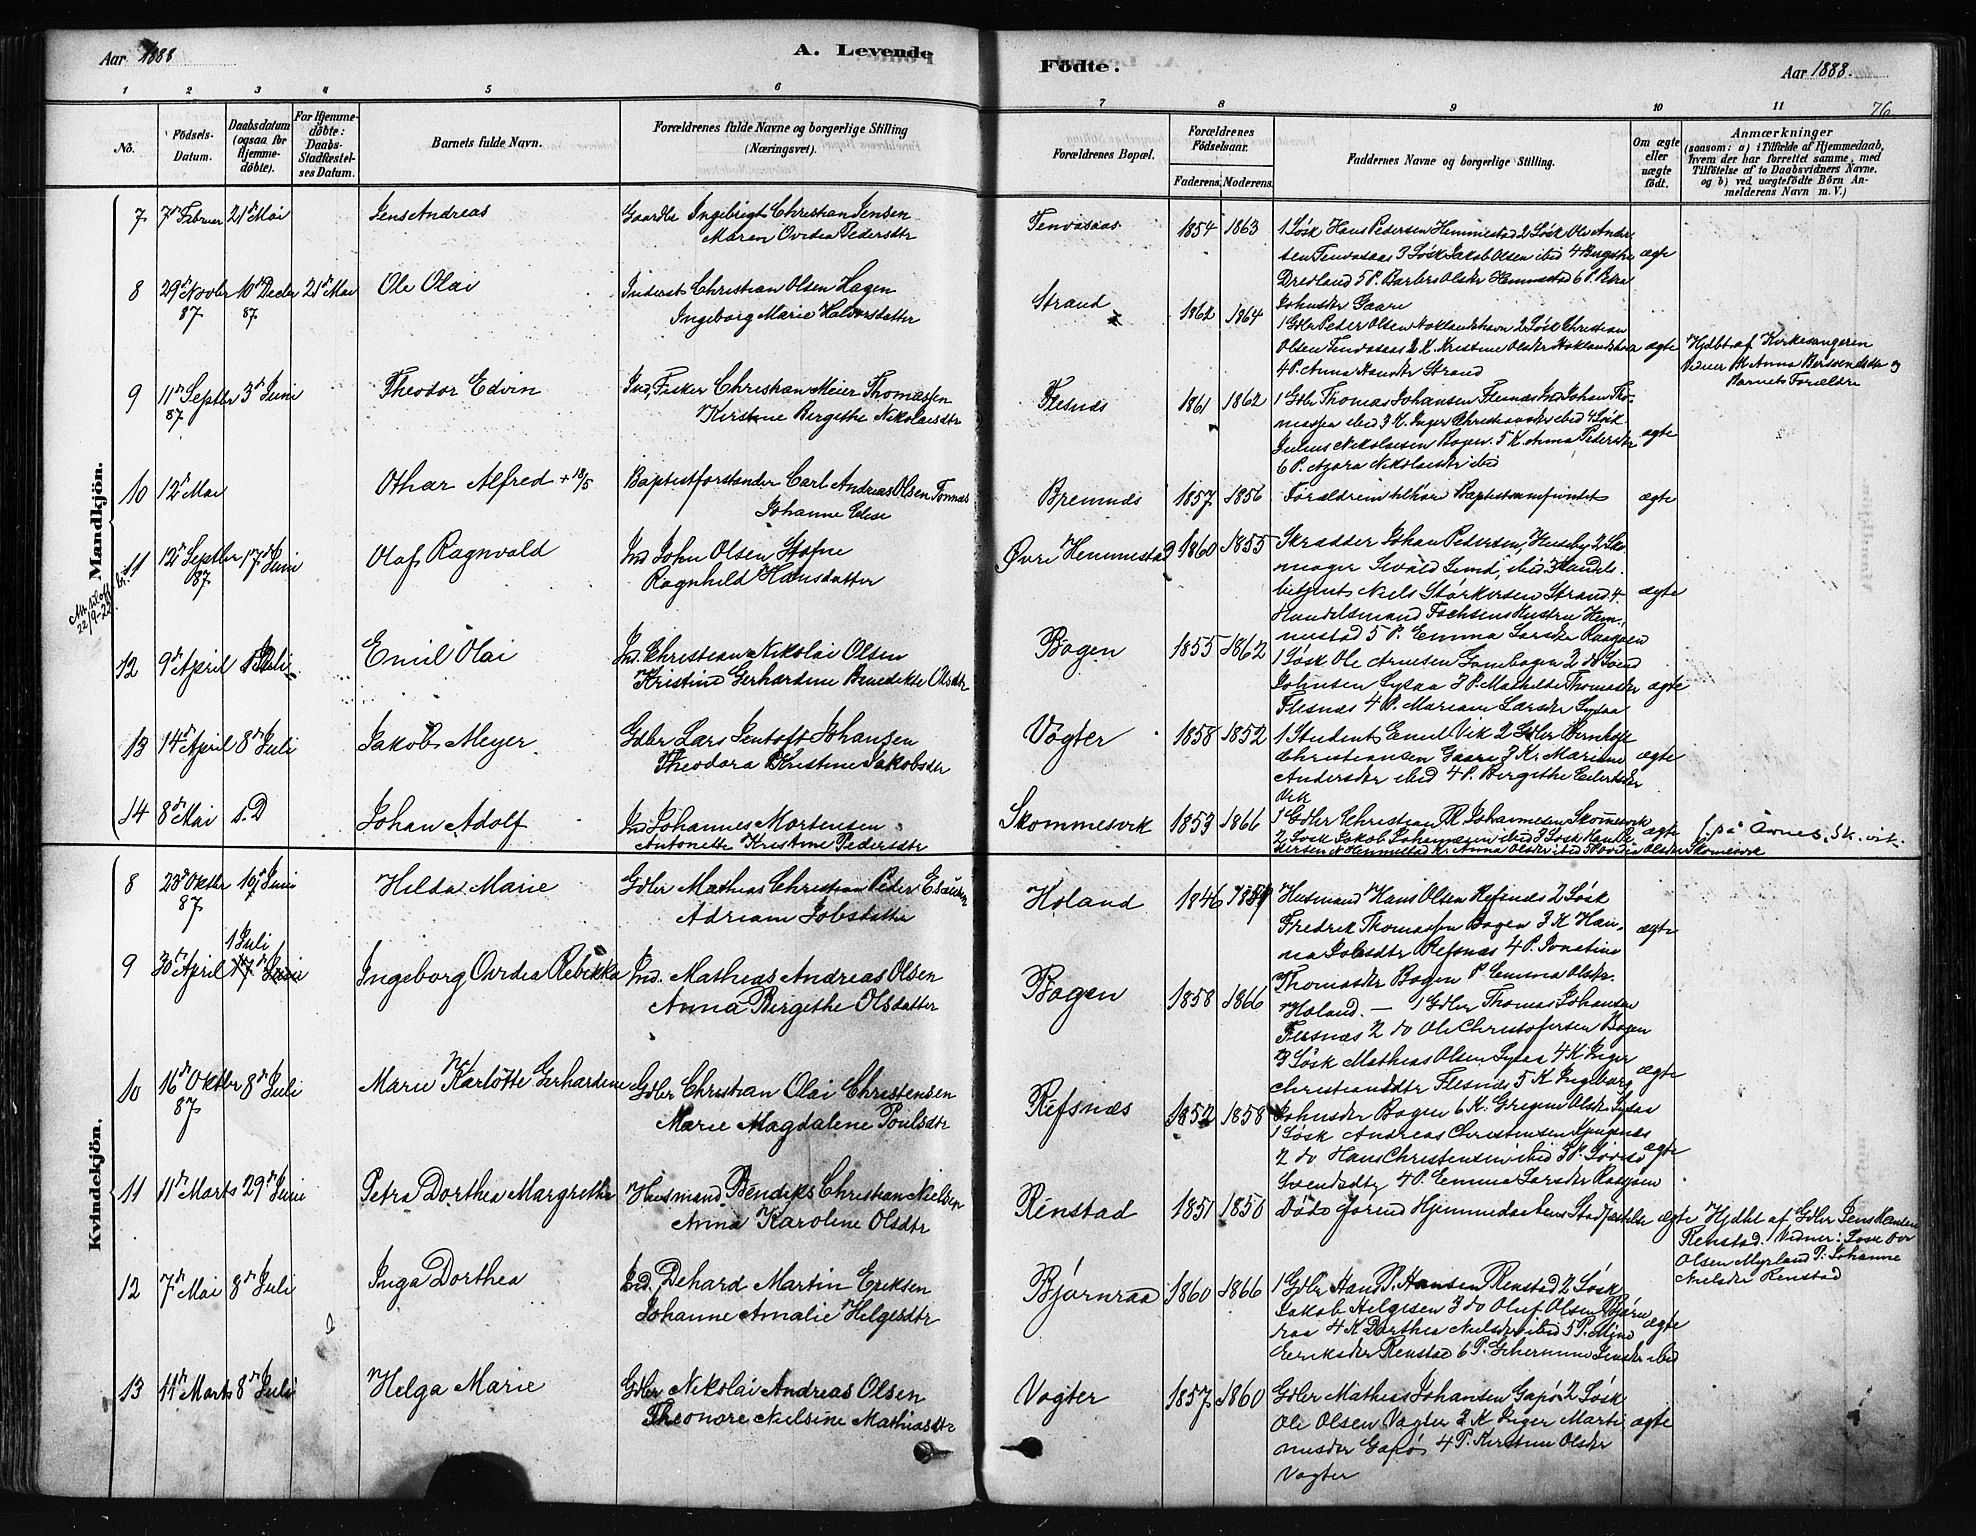 Aar 1888
A. Levende
Födte.
Aar 1888.
76
1 2 3 4 5 6 7 8 9 10 11
No.
Födsels-Datum.
Daabsdatum (ogsaa for Hjemmedöbte).
For Hjemmedöbte: Daabs-Stadfæstelses Datum.
Barnets fulde Navn.
Forældrenes fulde Navne og borgerlige Stilling (Næringsvei).
Forældrenes Bopæl.
Forældrenes Födselsaar.
Faderens. Moderens.
Faddernes Navne og borgerlige Stilling.
Om ægte eller uægte födt.
Anmærkninger
(saasom: a) i Tilfælde af Hjemmedaab, hvem der har forrettet samme, med Tilföielse af to Daabsvidners Navne, og b) ved uægtefödte Börn Anmelderens Navn m. V.)
Mandkjön.
7 7de Februar 21de Mai Jens Andreas
Gaardbr Ingebrigt Christian Jensen
Maren Ovidia Pedersdtr
Tenvasaas 1854 1863
1 Løsk Hans Pedersen Hemmestad 2 Løsk Ole Andersen Tenvasaas 3 Løsk Jakob Olsen ibid 4
Dredland 5 P. Olsdtr Hemmestad 6 P. Petra
Johnsdtr Gaare
ægte
8 29de Novbr 87 10de Decbr 87 21de Mai Ole Olai
Inderst Christian Olsen Hagen
Ingeborg Marie Halvorsdatter
Strand 1862 1864
1 Gdbr Peder Olsen Noklandshavn 2 Løsk Christian
Olsen Tenvasaas 3 K. Kristine Olsdtr
4 P. Anna Hansdtr Strand
ægte
Hjdbt af Kirkesangeren
Vidner Anna Berendsdtr og
Barnets Forældre
9 11te Septbr 87 3de Juni Theodor Edvin
Ind, Fisker Christian Meier Thomassen
Kirstine Bergithe Nikolaisdtr
Flesnæs 1861 1862
1 Gdbr Thomas Johansen Flesnæs Ind Johan Thomassen ibid 3 K. Inger Christiansdtr ibid 4 Løsk
Julius Nikolaisen Bogen 5 K Anna Pedersdtr
6 P. Nikolaisdtr ibid
ægte
10 12te Mai Othar Alfred + 18/5
Baptistforstander Carl Andreas Olsen
Johanne Edise
Bremnæs 1857 1856
Forældrene tilhør Baptistsamfundet
ægte
11 12te Septbr 87 17de Juni Olaf Ragnvald
Ind John Olsen Stofne
Ragnhild Hansdatter
Øvre Hemmestad 1860 1855
Skrædder Johan Pedersen, Huseby 2 Skomager Sivald Lund, ibid 3 Handelsbetjent Niels Størkersen Strand 4.
Handelsmand Fochsens Hustru Hemmestad 5 P. Emma Larsdtr Raagøen
ægte
22/9-22
12 9de April 1 Juli Emil Olai
Ind. Christian Nikolai Olsen
Kristine Gerhardine Benedikte Olsdtr
Bogen 1855 1862
1 Løsk Ole Arnesen 2 do
Johnsen Sysaa 3 P. Mathilde Thomasdtr
Flesnæs 4 P. Mariane Larsdtr Sysaa
ægte
13 14de April 8de Juli Jakob Meyer
Gdbr Lars Jentoft Johansen
Theodora Kristine Jakobsdtr
Vogter 1858 1852
1 Student Emil Vik 2 Gdbr Bernhoft
Christiansen Gaare 3 K. Mariane
Andersdtr ibid 4 P. Bergithe Eilertsdtr
Vik
ægte
14 8de Mai s. D Johan Adolf
Ind Johannes Mortensen
Antonette Kristine Pedersdtr
Skommesvik 1853 1866
1 Gdbr Christian Johannesen Skommesvik
2 Løsk Jakob Johannesen ibid 3 Løsk
Hemmestad K. Anna Olsdtr ibid 5 Ovidia Olsdtr Skomesvik
ægte
f. på
Kvindekjön.
8 23de Oktbr 87 10de Juni Hilda Marie
Gdbr Mathias Christian Peder Esaiesen
Adriane Jobsdatter
Holand 1846 1859
Husmand Hans Olsen Refsnæs 2 Løsk
Fredrik Thomassen Bogen 3 K Hanna Jobsdtr Refsnæs 4 P. Jonatine
Thomasdtr Bogen P. Emma Olsdtr.
Holand. —
ægte
9 30te April 1 Juli 17de Juni Ingeborg Ovidia Rebikka
Ind. Mathias Andreas Olsen
Anna Bergithe Olsdatter
Bogen 1858 1866
1 Gdbr Thomas Johansen
Flesnæs 2 do Ole Christofersen Bogen
3 Løsk Mathias Olsen Sysaa 4 K Inger
Christiansdtr Flesnæs 5 K Ingeborg
Johnsdtr Bogen 6 K. Olsdtr Sysaa
ægte
10 16de Oktbr 87 8de Juli Marie Karlotte Gerhardine
Gdbr Christian Olai Christensen
Marie Magdalene Poulsdtr
Refsnæs 1852 1858
1 Løsk Andreas Christensen
2 do Hans Christensen ibid 3 P. Lovise
Svendsdtr 4 P. Emma Larsdtr Raagøen
ægte
11 11te Marts 29de Juni Petra Dorthea Margrethe
Husmand Bendiks Christian Nielsen
Anna Karoline Olsdtr
Renstad 1851 1850
Døde foren Hjemmedaabens Stadfæstelse
ægte
Hjdbt af Gdbr Jens Hansen
Renstad. Vidner:
Olsen Myrland P. Johanne
Nielsdtr Renstad
12 7de Mai 8de Juli Inga Dorthea
Ind. Dehard Martin Eriksen
Johanne Amalie Helgesdtr
Bjørnraa 1860 1866
1 Gdbr Hans P. Hansen Renstad 2 Løsk
Jakob Helgesen 3 do Oluf Olsen Bjørnraa 4 K Dorthea Nielsdtr ibid 5 P. Mine
Eriksdtr Renstad 6 P. Jensdtr ibid
ægte
13 11te Marts 8de Juli Helga Marie
Gdbr Nikolai Andreas Olsen
Theonore Nielsine Mathiasdtr
Vogter 1857 1860
Gdbr Mathias Johansen Gapø 2 Løsk
Ole Olsen Vogter 3 K Inger Martinusdtr Gapø 4 P. Kirstine Olsdtr
Vogter
ægte